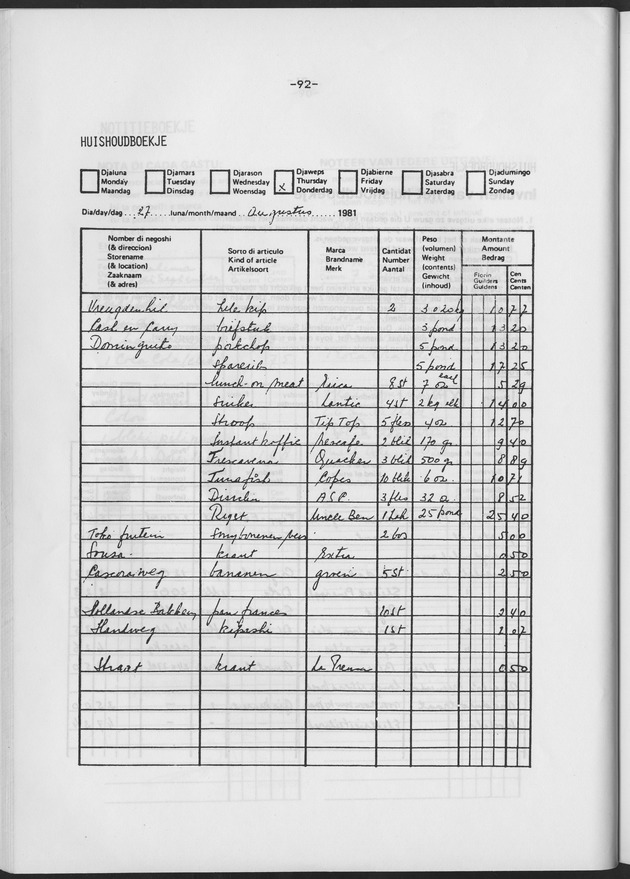 -92-
HUISHOUDBOEKJE
Djaluna Monday Maandag
Djamars Tuesday Dinsdag
Djarason Wednesday Woensdag
x Djaweps Thursday Donderdag
Djabierne Friday Vrijdag
Djasabra Saturday Zaterdag
Djadumingo Sunday Zondag
Dia/day/dag 27 luna/month/maand augustus 1981
Nombor di negoshi (& direccion) Storename (& location) Zaaknaam (& adres)
Sorto di articulo Kind of article Artikelsoort
Marca Brandname Merk
Cantidat Number Aantal
Peso (volumen) Weight (contents) Gewicht (inhoud)
Montante Amount Bedrag
Florin Guilders Guldens
Cen Cents Centen
Vreugdenhil hele kip 2 10 77
Cash en Carry biefstuk 3 pond 13 20
Dominguito porkchop 5 pond 13 20
Spareribs 5 pond 17 25
lunch-on meat 8 st 7 oz each 5 29
Suiker Lantic 4 st 2 kg elk 14 00
Stroop Tip Top 5 fles 4 oz 12 70
Instant koffie Nescafe 2 blik 170 gr 9 40
Quacker 3 blik 500 gr 8 89
Tunafish 10 blik 6 oz 10 71
3 fles 32 o. 8 52
Rijst Uncle Ben 1 zak 25 pond 25 40
Toko 2 bos 5 00
krant Extra 0 50
bananen groen 5 st 2 50
Hollandse Bakkerij pan frances 10 st 2 40
Handweg 1 st 2 02
Straat krant 0 50